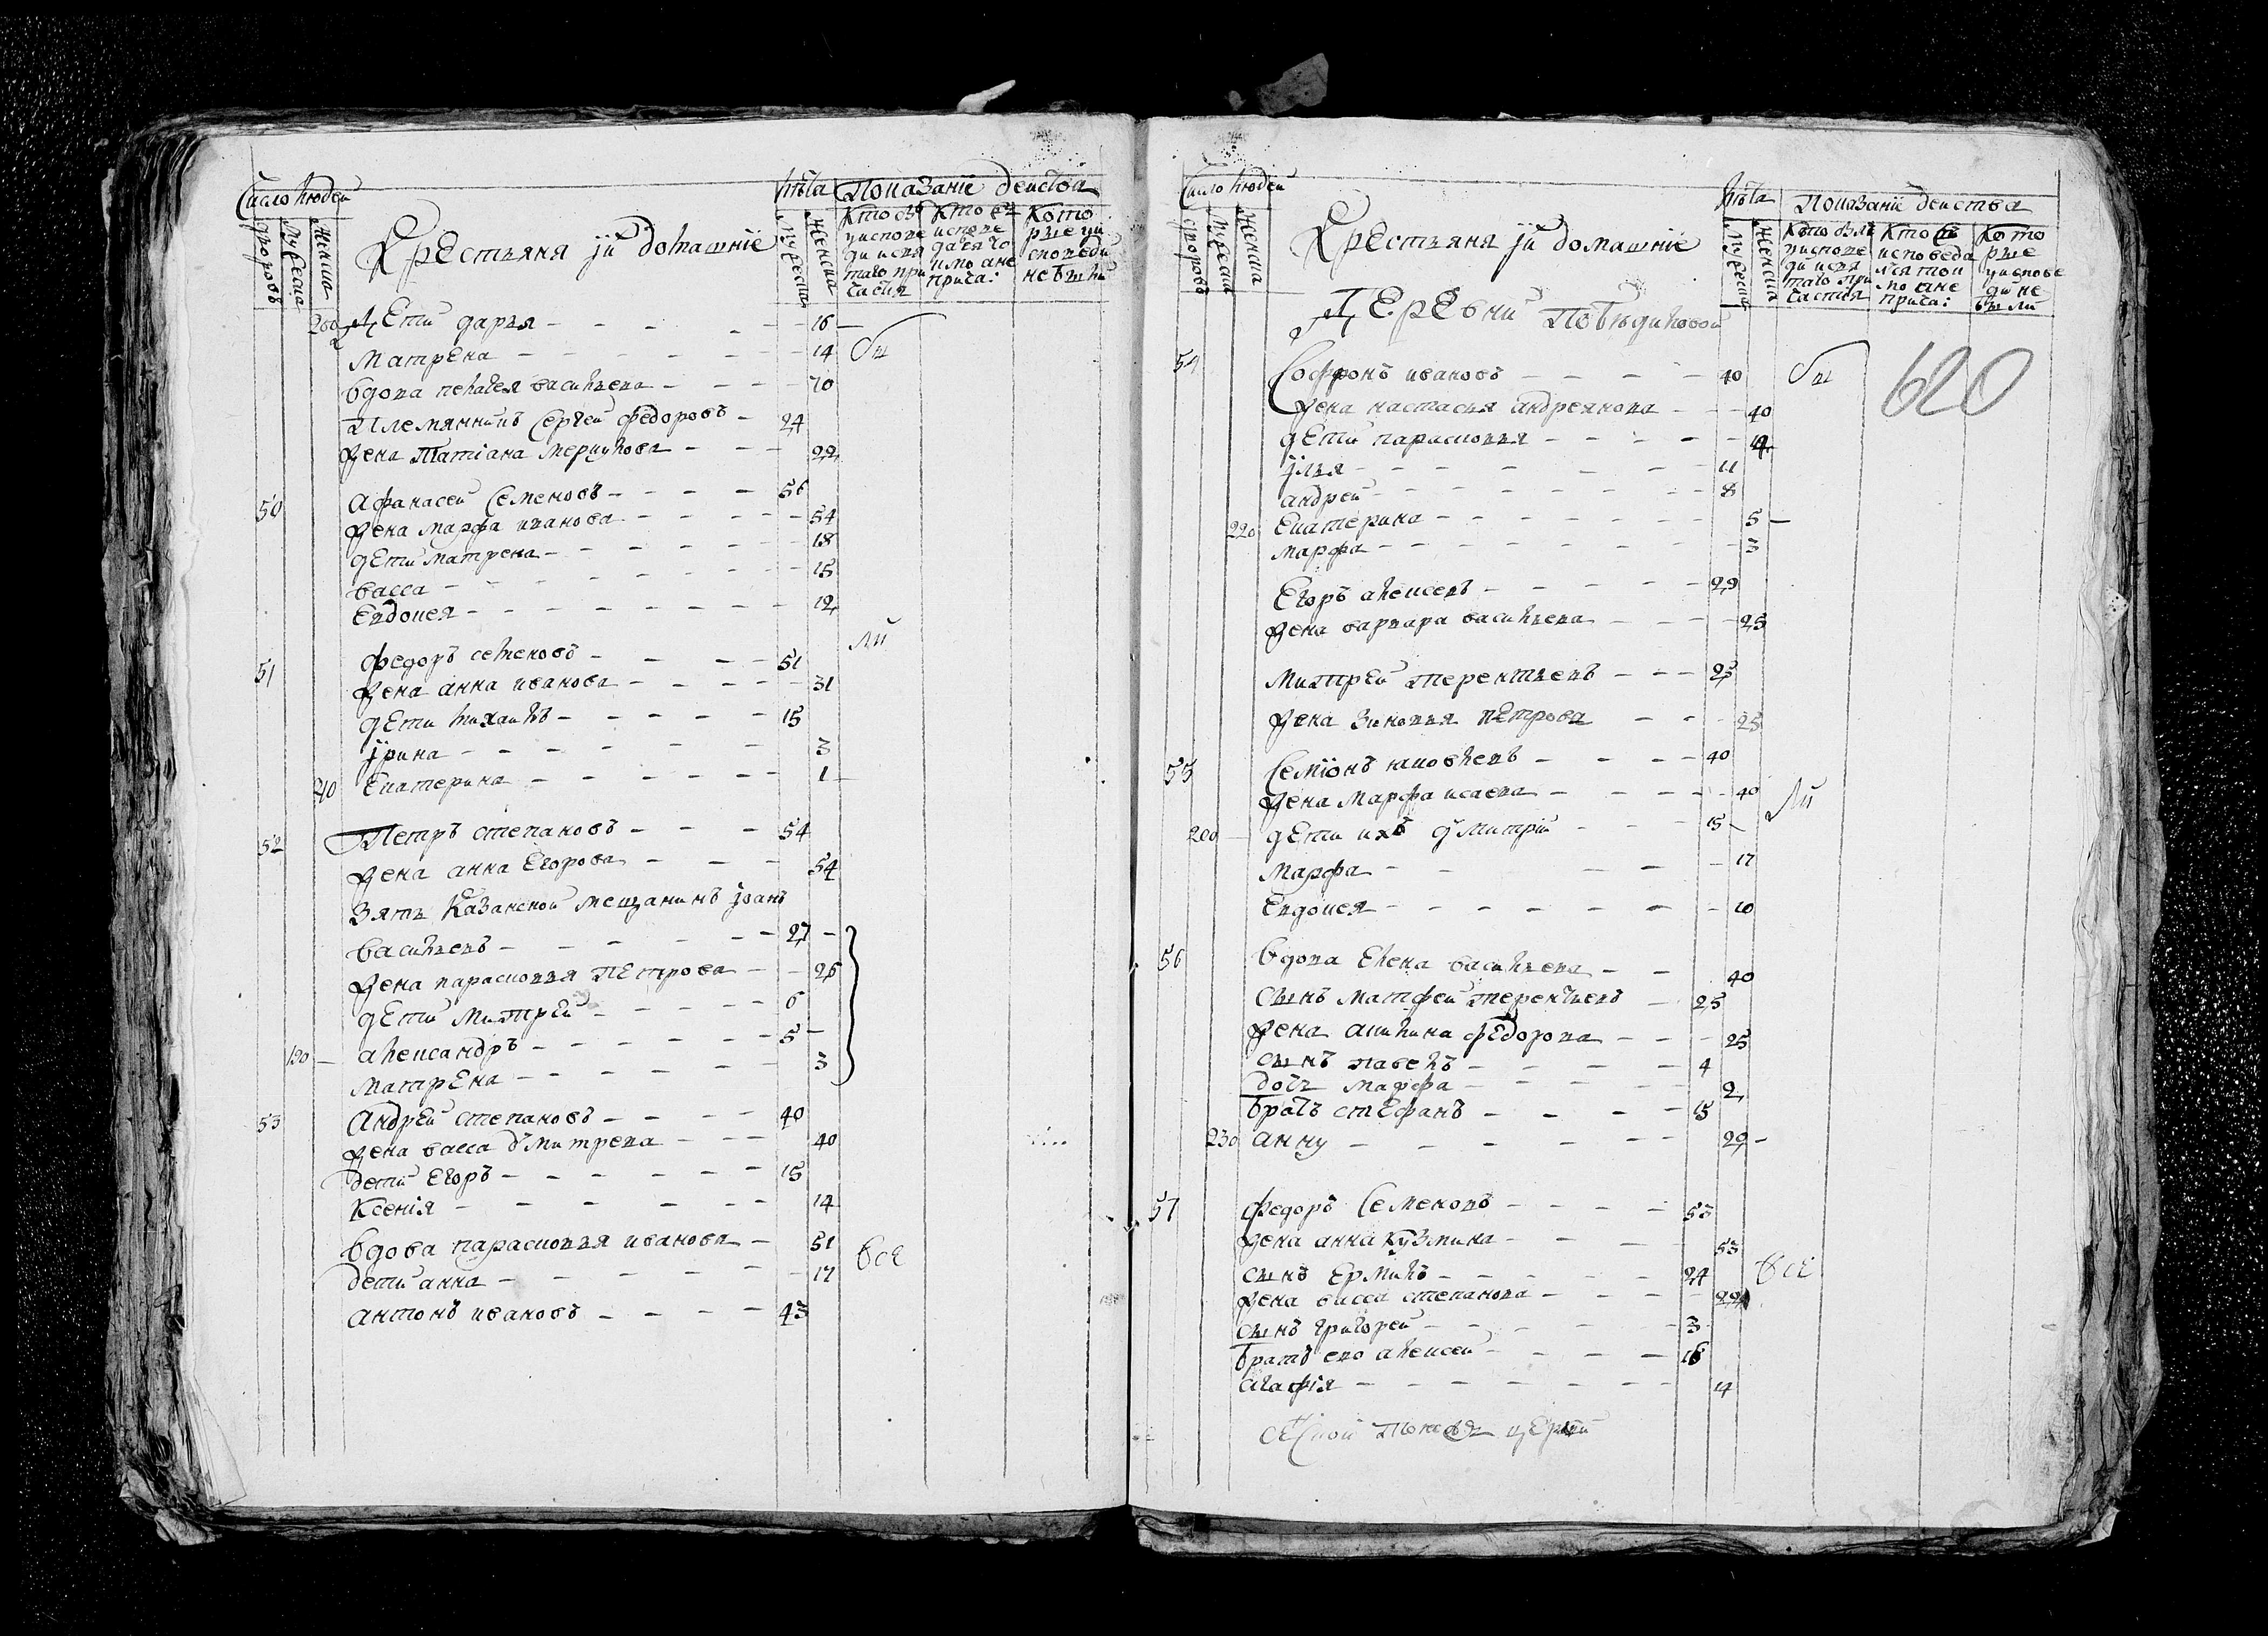 Число людей
дворовъ
мужеска
женска
Крестьяня їи домашнїе
Лѣта
мужеска
женска
Показанїе деиства
Кто бы
у испове
ди и свя
таго при
частия
Кто
испове
дался то
кмо а не
прича:
Кото
рые у и
споведи
не были
200 Дети дарья - 16
Матрена - 14 бы
вдова пелагея васильева - 70
Племянникъ Сергеи федоровъ - 24
жена Татiана Меркулова - 22
50 Афанасеи Семеновъ - 56
жена марфа иванова - 54
дети матрена - 18
васса - 15
Евдокея - 12
ли
51 федоръ семеновъ - 51
жена анна иванова - 31
дети михаилъ - 15
їрина - 3
210 Екатерина - 1
52 Петръ степановъ - 54
жена анна Егорова - 54
Зять Казанской мещанинъ їванъ
васильевъ - 27
жена парасковья Петрова - 26
дети Митреи - 6
190 александръ - 5
матрена - 3
53 Андреи степановъ - 40
жена васса дмитрева - 40
дети Егоръ - 15
Ксенiя - 14
вдова парасковья иванова - 51 все
дети анна - 17
антонъ ивановъ - 43
Число людей
дворовъ
мужеска
женска
Крестьяня їи домашнїе
Лѣта
мужеска
женска
Показанїе деиства
Кто был
у испове
ди и свя
таго при
частия
Кто
исповеда
лся
кмо а не
прича:
Кото
рые
у испове
ди не
были
Деревни
620
54 Софронъ ивановъ - 40 бы
жена настасья андреянова - 40
дети парасковья - 14
їлья - 11
андреи - 8
220 Екатерина - 5
марфа - 3
Егоръ алексеевъ - 29
жена варвара васильева - 25
Митреи терентьевъ - 25
жена зиновья петрова - 25
55 Семїонъ яковлевъ - 40
жена марфа исаева - 40 ли
200 дети ихъ дмитрiи - 15
Марфа - 17
Евдокея - 10
56 вдова Елена васильева - 40
сынъ матфеи терентьевъ - 25
жена акилина федорова - 25
сынъ павелъ - 4
дочь марфа - 2
братъ стефанъ - 15
230 анну - 29
57 федоръ Семеновъ - 53
жена анна кузмина - 53
сынъ Ермилъ - 24 все
жена васса степанова - 22
сынъ григореи - 3
братъ ево алексеи - 16
агафiя - 14